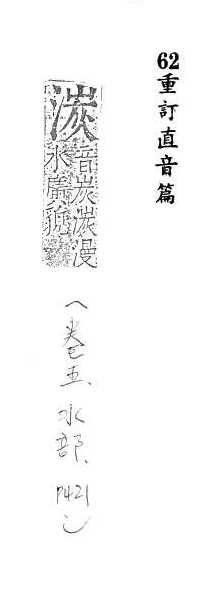 62重訂直音篇
湠
音炭湠漫
水廣貌
（卷五、水部、P421）